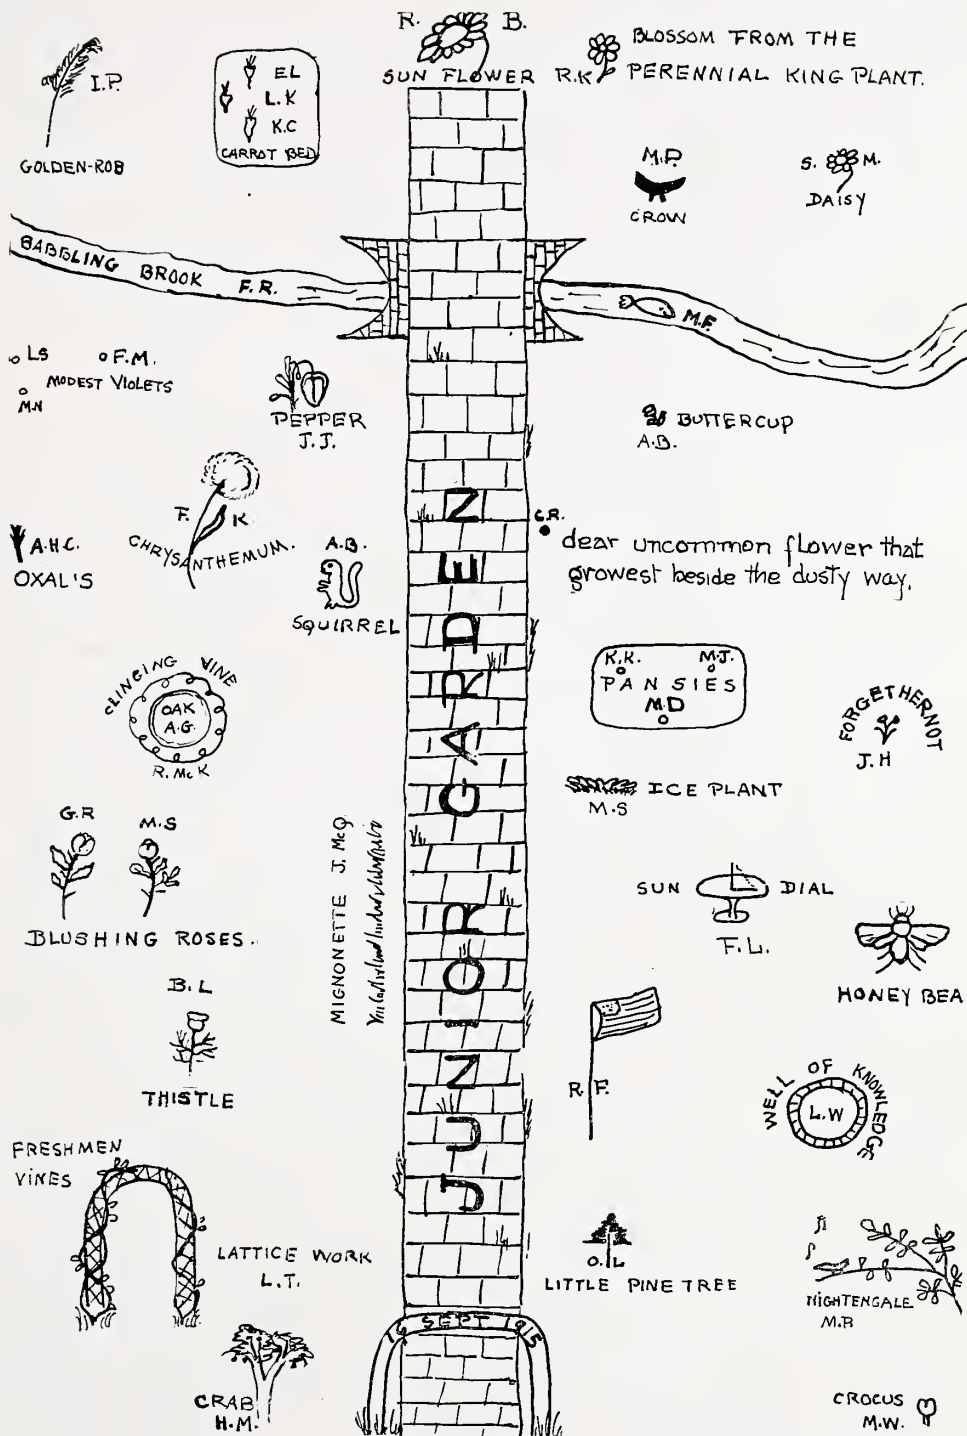 R. B.
SUN FLOWER
R.K
BLOSSOM FROM THE
PERENNIAL KING PLANT.
I.P.
GOLDEN-ROB
EL
L.K
K.C
CARROT BED
M.P.
CROW
S. M.
DAISY
BABBLING BROOK F.R.
M.F.
LS F.M.
MODEST VIOLETS
M.N
PEPPER
J.J.
BUTTERCUP
A.B.
F. K
CHRYSANTHEMUM.
A.H.C.
OXAL'S
A.B.
SQUIRREL
C.R.
dear uncommon flower that
growest beside the dusty way.
CLINGING VINE
OAK
A.G.
R. McK
K.K. M.J.
PANSIES
M.D
FORGETHERNOT
J.H
ICE PLANT
M.S
G.R M.S
BLUSHING ROSES.
MIGNONETTE J. McQ
JUNIOR GARDEN
SUN DIAL
F.L.
HONEY BEA
B.L
THISTLE
R F.
WELL OF KNOWLEDGE
L.W
FRESHMEN
VINES
LATTICE WORK
L.T.
O.L
LITTLE PINE TREE
NIGHTENGALE
M.R
16 SEPT 1915
CRAB
H.M.
CROCUS
M.W.